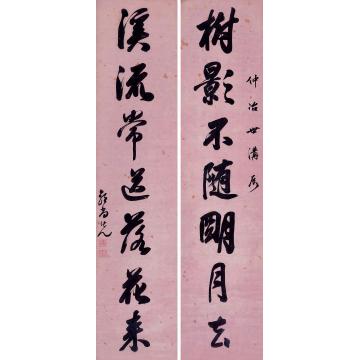 樹影不隨明月去
仲冶世講屬
溪流常送落花來